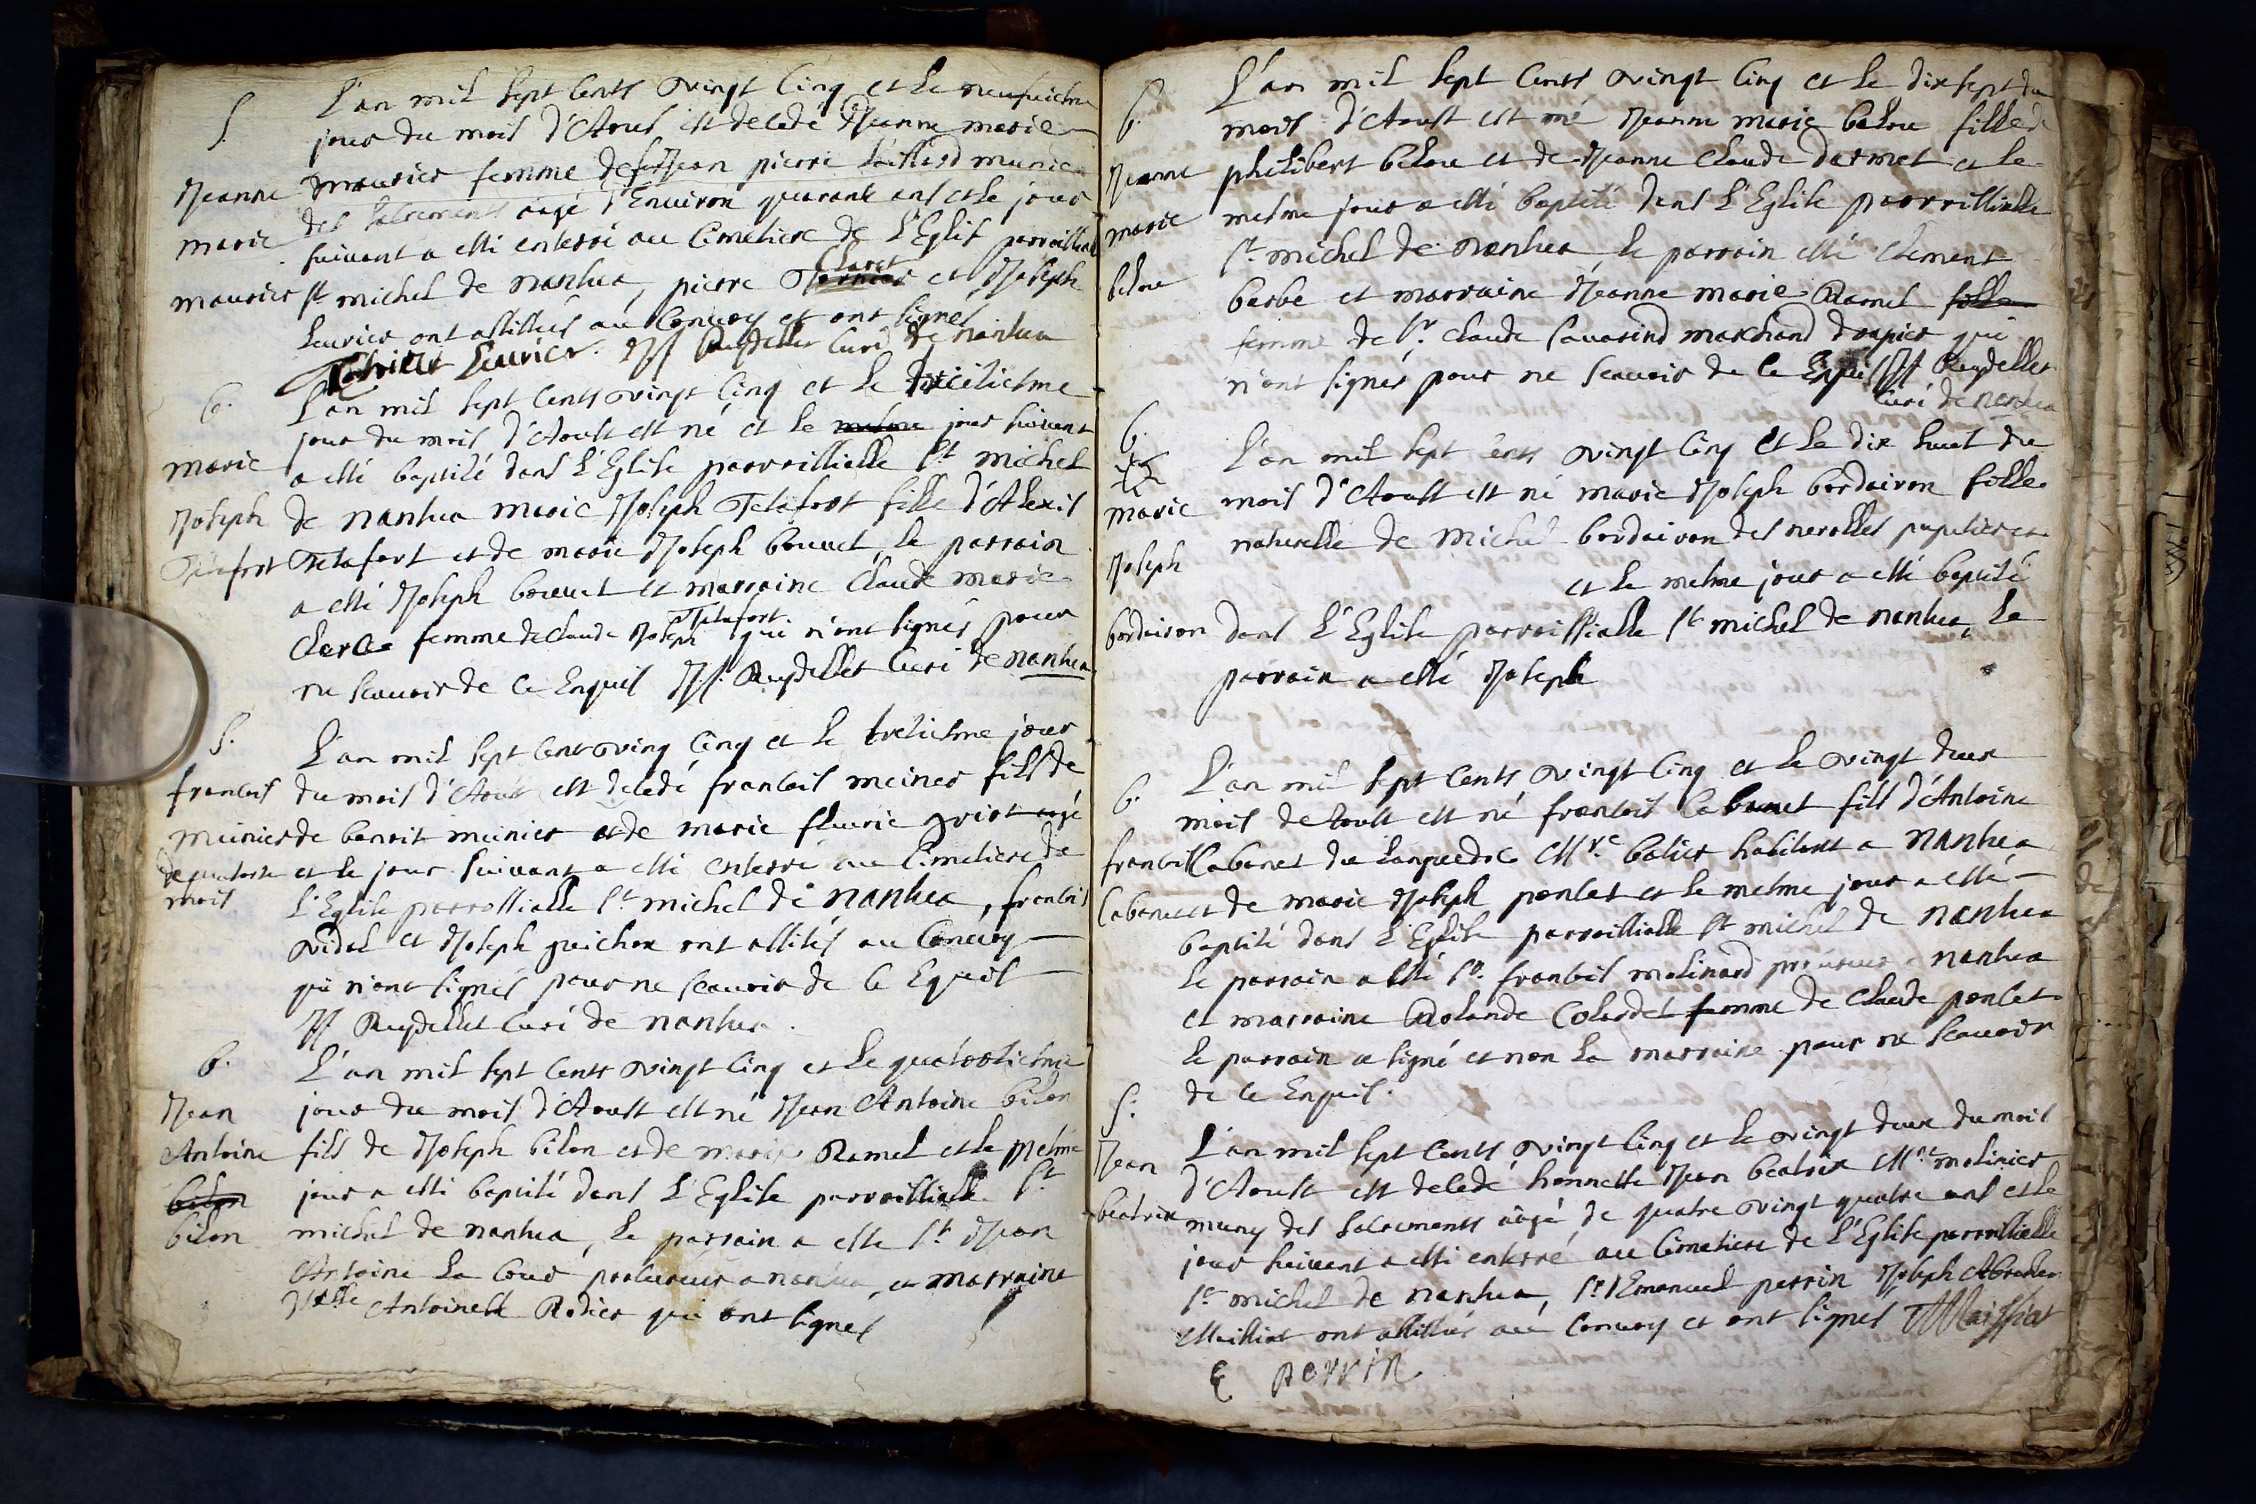 S.
L'an mil sept cents vingt cinq et le neufviesme
jour du mois d'Aout est decedé Jeanne marie
Jeanne
maurier femme de feu Jean pierre munie
des sacrements aagé d'Environ quarante ans et le jour
marie
suivant a esté enterré au Cimetiere de L'Eglise parroissialle
maurier
st michel de nantua, pierre Claret et Joseph
Leurier ont assistés au Convoy et ont signes
Leurier. JJ Reydellet Curé de nantua
b.
L'an mil sept cents vingt cinq et le
jour du mois d'Aoust est né et le mesme jour suivant
marie
a esté baptisé dans L'Eglise parroissialle st michel
Joseph
de nantua marie Joseph Tetafort fille d'Alexis
Tetafort
Tetafort et de marie Joseph bouvet, le parrain
a esté Joseph bouvet et marraine Claude marie
femme de Claude Joseph Tetafort qui n'ont signés pour
ne scauoir de ce Enquis JJ. Reydellet Curé de nantua
S.
L'an mil sept cent ving cinq et le treisiesme jour
francois
du mois d'Aout est decedé francois meinier fils de
meinier
de benoit meinier et de marie fleurie griot aagé
de quatorze
et le jour suivant a esté enterré au Cimetiere de
mois
L'Eglise parrossialle st michel de nantua, francois
vidal et Joseph guichon ont assités au Convoy
qui n'ont signés pour ne scauoir de ce Equis
JJ Reydellet Curé de nantua.
b.
L'an mil sept cents vingt cinq et le quatorsiesme
Jean
jour du mois d'Aoust est né Jean Antoine bilon
Antoine
fils de Joseph bilon et de marie Ramel et le mesme
bilon
jour a esté baptisé dans L'Eglise parroissialle st
bilon
michel de nantua, le parrain a esté sr Jean
Antoine La Cour procureur a nantua, et marraine
Dlle Antoinette Rodier qui ont signes
b.
L'an mil sept cents vingt cinq et le dix sept du
mois d'Aoust est né Jeanne marie belou fille de
Jeanne
philibert belou et de Jeanne Claude darmet et le
marie
mesme jour a esté baptisé dans L'Eglise parroissialle
st michel de nantua, le parrain esté Clement
belou
barbe et marraine Jeanne marie Ramel fille
femme de sr. Claude Savarind marchand drapier qui
n'ont signés pour ne scauoir de ce Enquis JJ Reydellet
Curé de nantua
b.
L'an mil sept cents vingt cinq et le dix huit du
marie
mois d'Aoust est né marie Joseph bordairon fille
naturelle de Michel bordairon des nerolles papetier et
Joseph
et le mesme jour a esté baptisé
bordairon
dans L'Eglise parroissialle st michel de nantua, Le
parrain a esté Joseph
b.
L'an mil sept cents vingt cinq et le vingt deux
mois de aoust est né francois Cabanet fils d'Antoine
francois
Cabanet du Languedoc Mre batier habitant a Nantua
Cabanet
et de marie Joseph poncet et le mesme jour a esté
baptisé dans L'Eglise parroissialle st michel de nantua
le parrain a esté sr. francois molinard procureur a nantua
et marraine Rolande Colardet femme de Claude poncet
le parrain a signé et non la marraine pour ne scauoir
de ce Enquis.
S.
L'an mil sept cents vingt cinq et le vingt deux du mois
Jean
d'Aoust est decedé honneste Jean beatrix Mre molinier
beatrix
muny des Sacrements aagé de quatre vingt quatre ans et le
jour suivant a esté enterré au Cimetiere de L'Eglise parroissialle
st michel de nantua, sr Emanuel perrin Joseph Abraham
Maissiat ont assistés au Convoy et ont signes Maissiat
E perrin